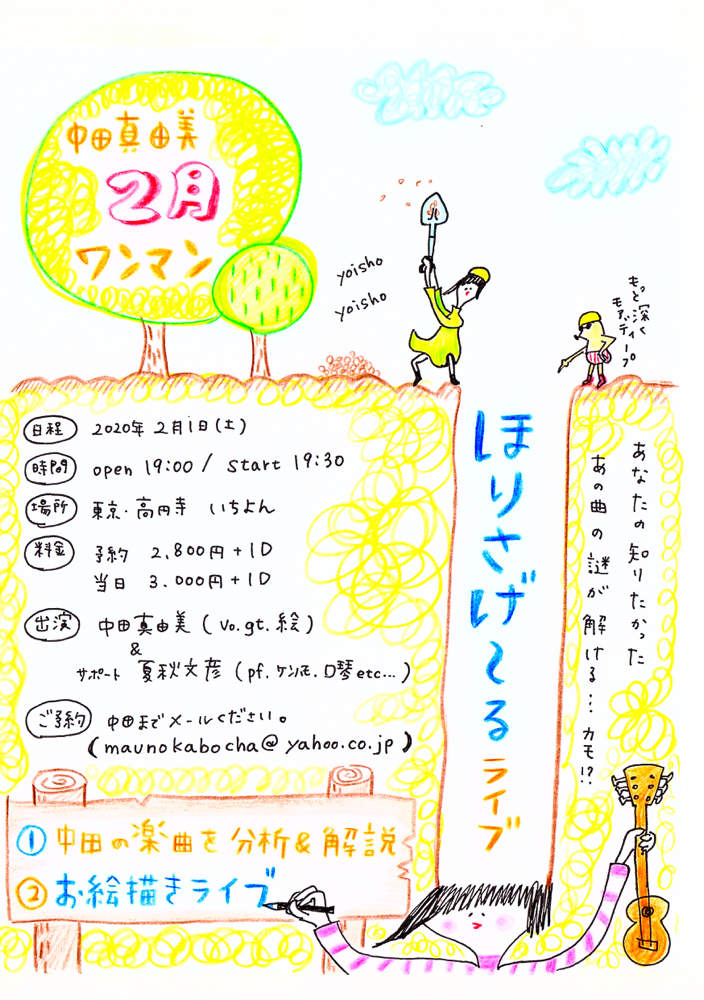 中田真由美
2月
ワンマン
yoisho
yoisho
もっと深く
モアディープ
日程 2020年 2月1日(土)
時間 open 19:00 / start 19:30
場所 東京・高円寺 いちよん
料金 予約 2,800円+1D
当日 3.000円+1D
出演 中田真由美 (vo.gt.絵)
&
サポート 夏秋文彦 (pf.ケンハモ.口琴etc...)
ご予約 中田までメールください。
(maunokabocha@yahoo.co.jp)
ほりさげ〜るライブ
あなたの知りたかった
あの曲の謎が解ける... カモ!?
① 中田の楽曲を分析&解説
② お絵描きライブ